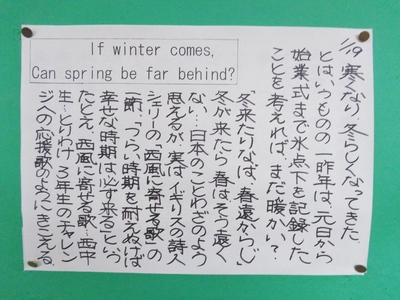 If winter comes,
Can spring be far behind?
1/19 寒くなり、冬らしくなってきた。
とはいうものの一昨年は、元日から
始業式まで氷点下を記録した
ことを考えれば、まだ暖かい?
「冬来たりなば、春遠からじ」
冬が来たら春はそう遠く
ない…日本のことわざのよう
思えるが、実はイギリスの詩人
シェリーの「西風に寄せる歌」の
一節。「つらい時期を耐えぬけば
幸せな時期は必ず来る」という
たとえ。西風に寄せる歌…西中
生…とりわけ3年生のチャレン
ジへの応援歌のようにきこえる。